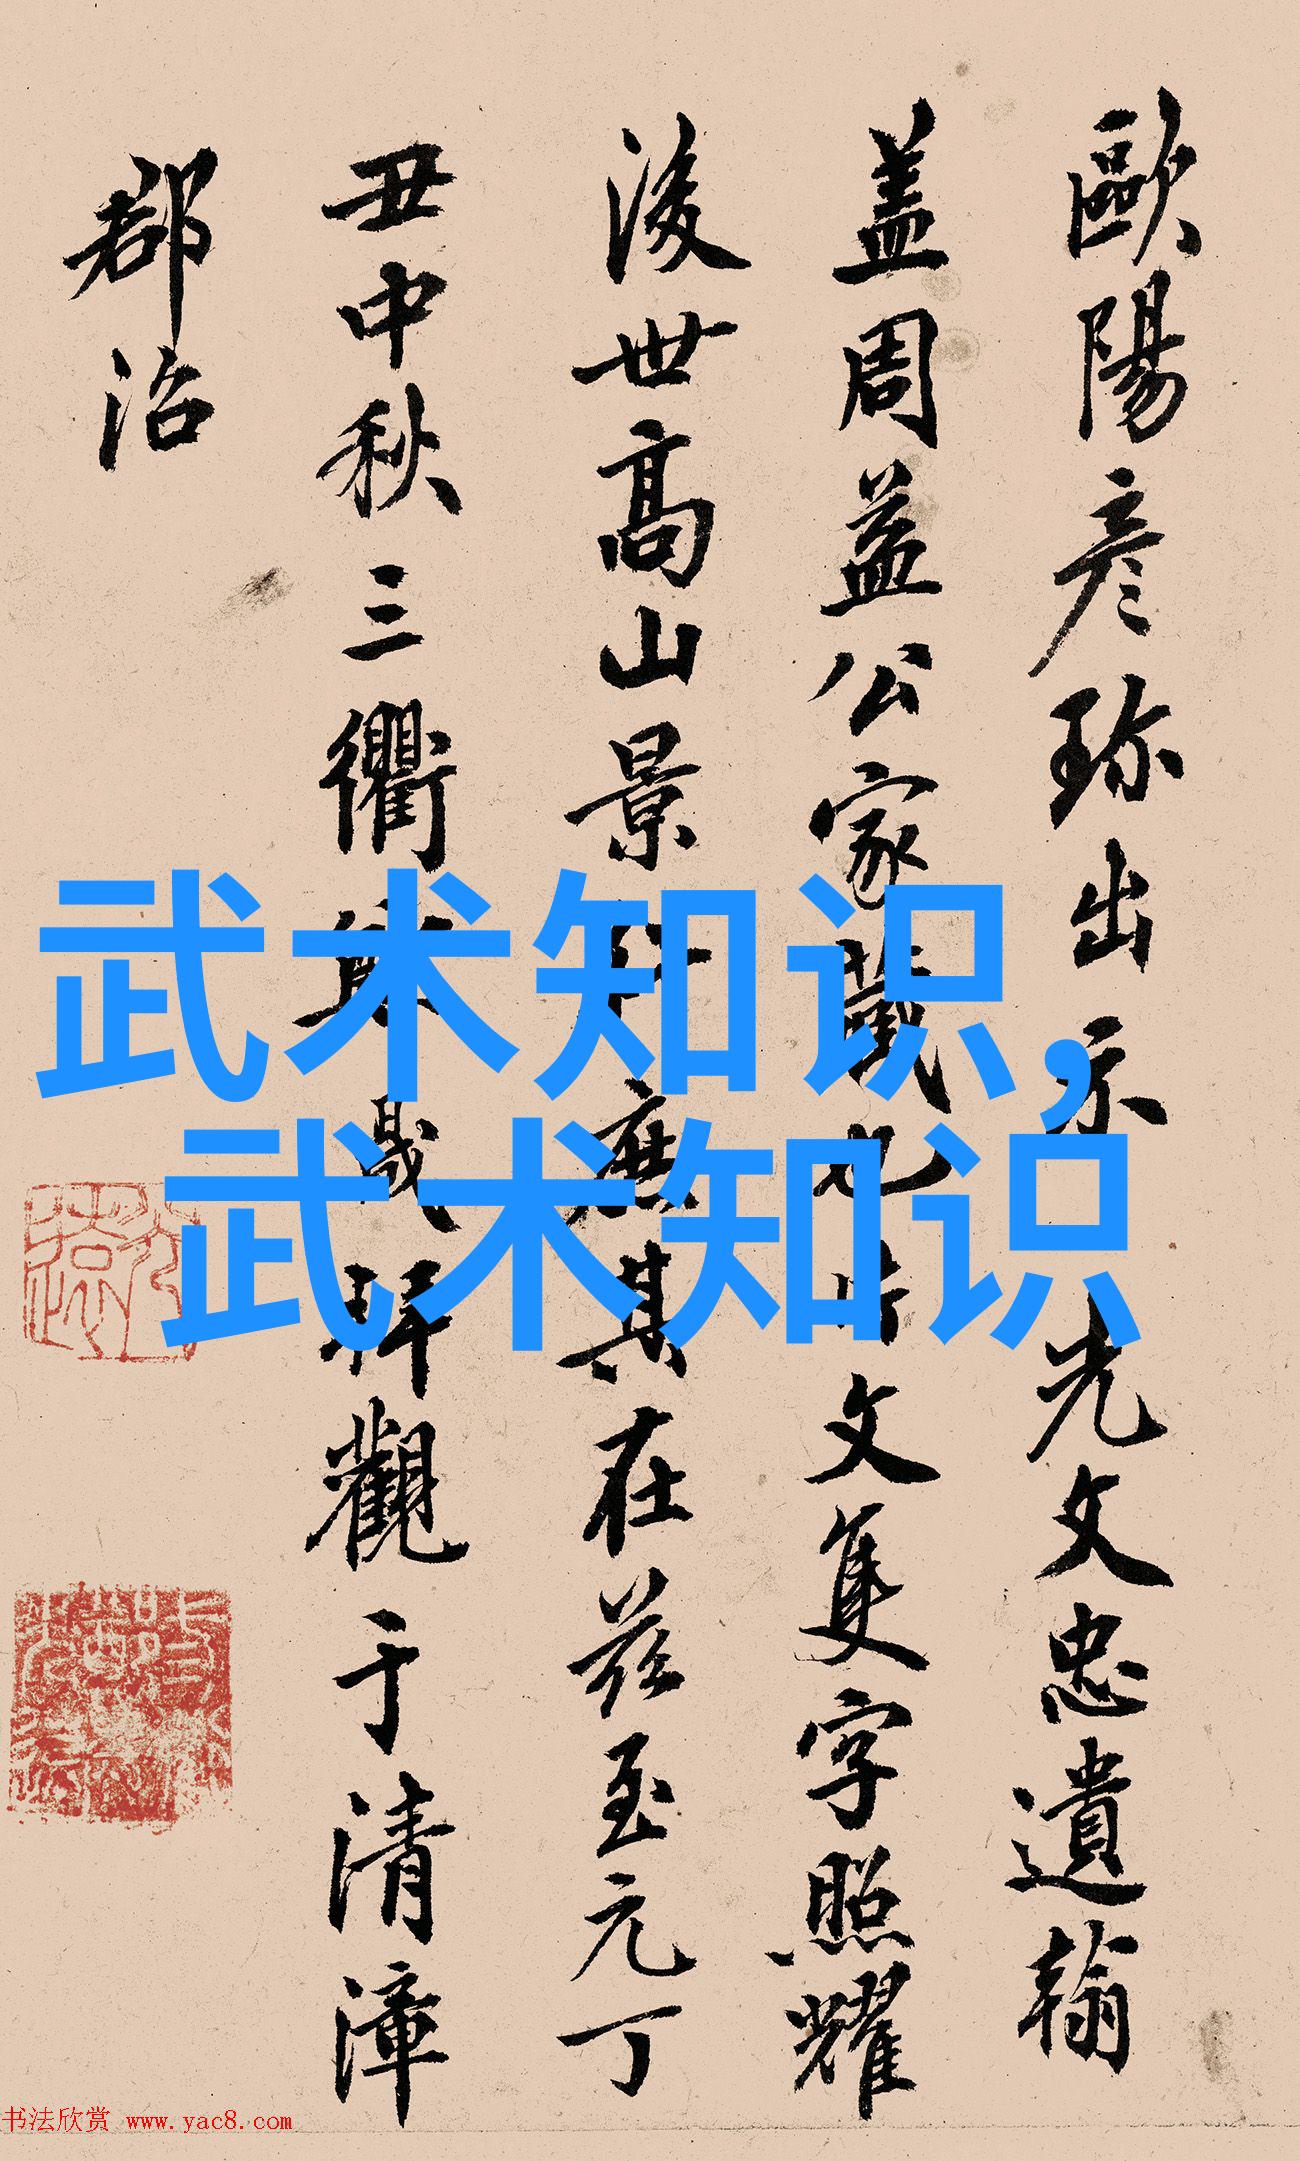 歐陽彦珎出示 光文忠遺翰
盖周益公家藏也 文隻字照耀
後世髙山景 庶其在兹至元丁
丑中秋三衢 晟拜觀于清漳
郡治
武术知识,
武术知识
书法欣赏 www.yac8.com